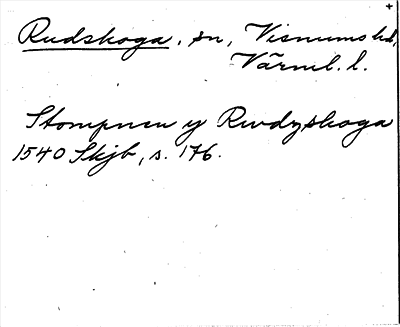 +
Rudskoga, sn, Visnums hd,
Värml. l.
Stompnen y Rwdzskoga
1540 Skjb, s. 176.